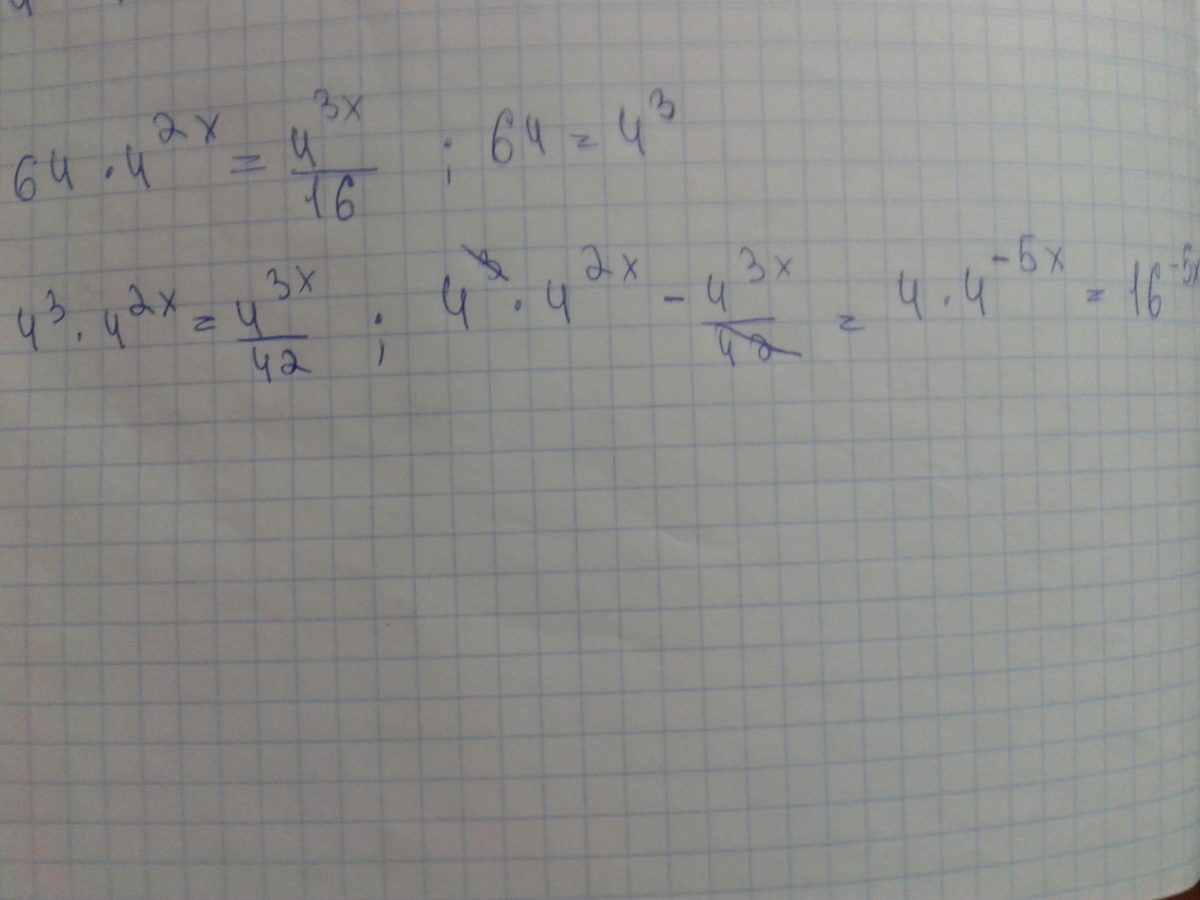 64 · 4^{2x} = \frac{4^{3x}}{16} ; 64 = 4^3
4^3 · 4^{2x} = \frac{4^{3x}}{42} ; 4^3 · 4^{2x} - \frac{4^{3x}}{42} = 4 · 4^{-5x} = 16^{-5x}